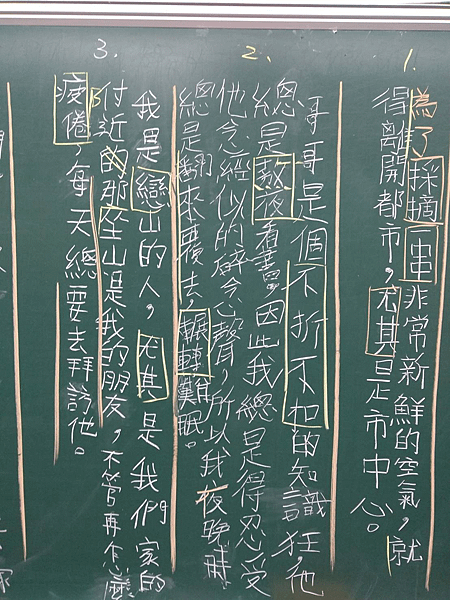 1.
為了採摘一串非常新鮮的空氣，就
得離開都市，尤其是市中心。
2.
哥哥是個不折不扣的知識狂，他
總是熬夜看書，因此我總是得忍受
他念經似的碎念聲，所以我夜晚時
總是翻來覆去，輾轉難眠。
3.
我是戀山的人，尤其是我們家的
付近的那座山是我的朋友，不管再怎麼
疲倦，每天總要去拜訪他。